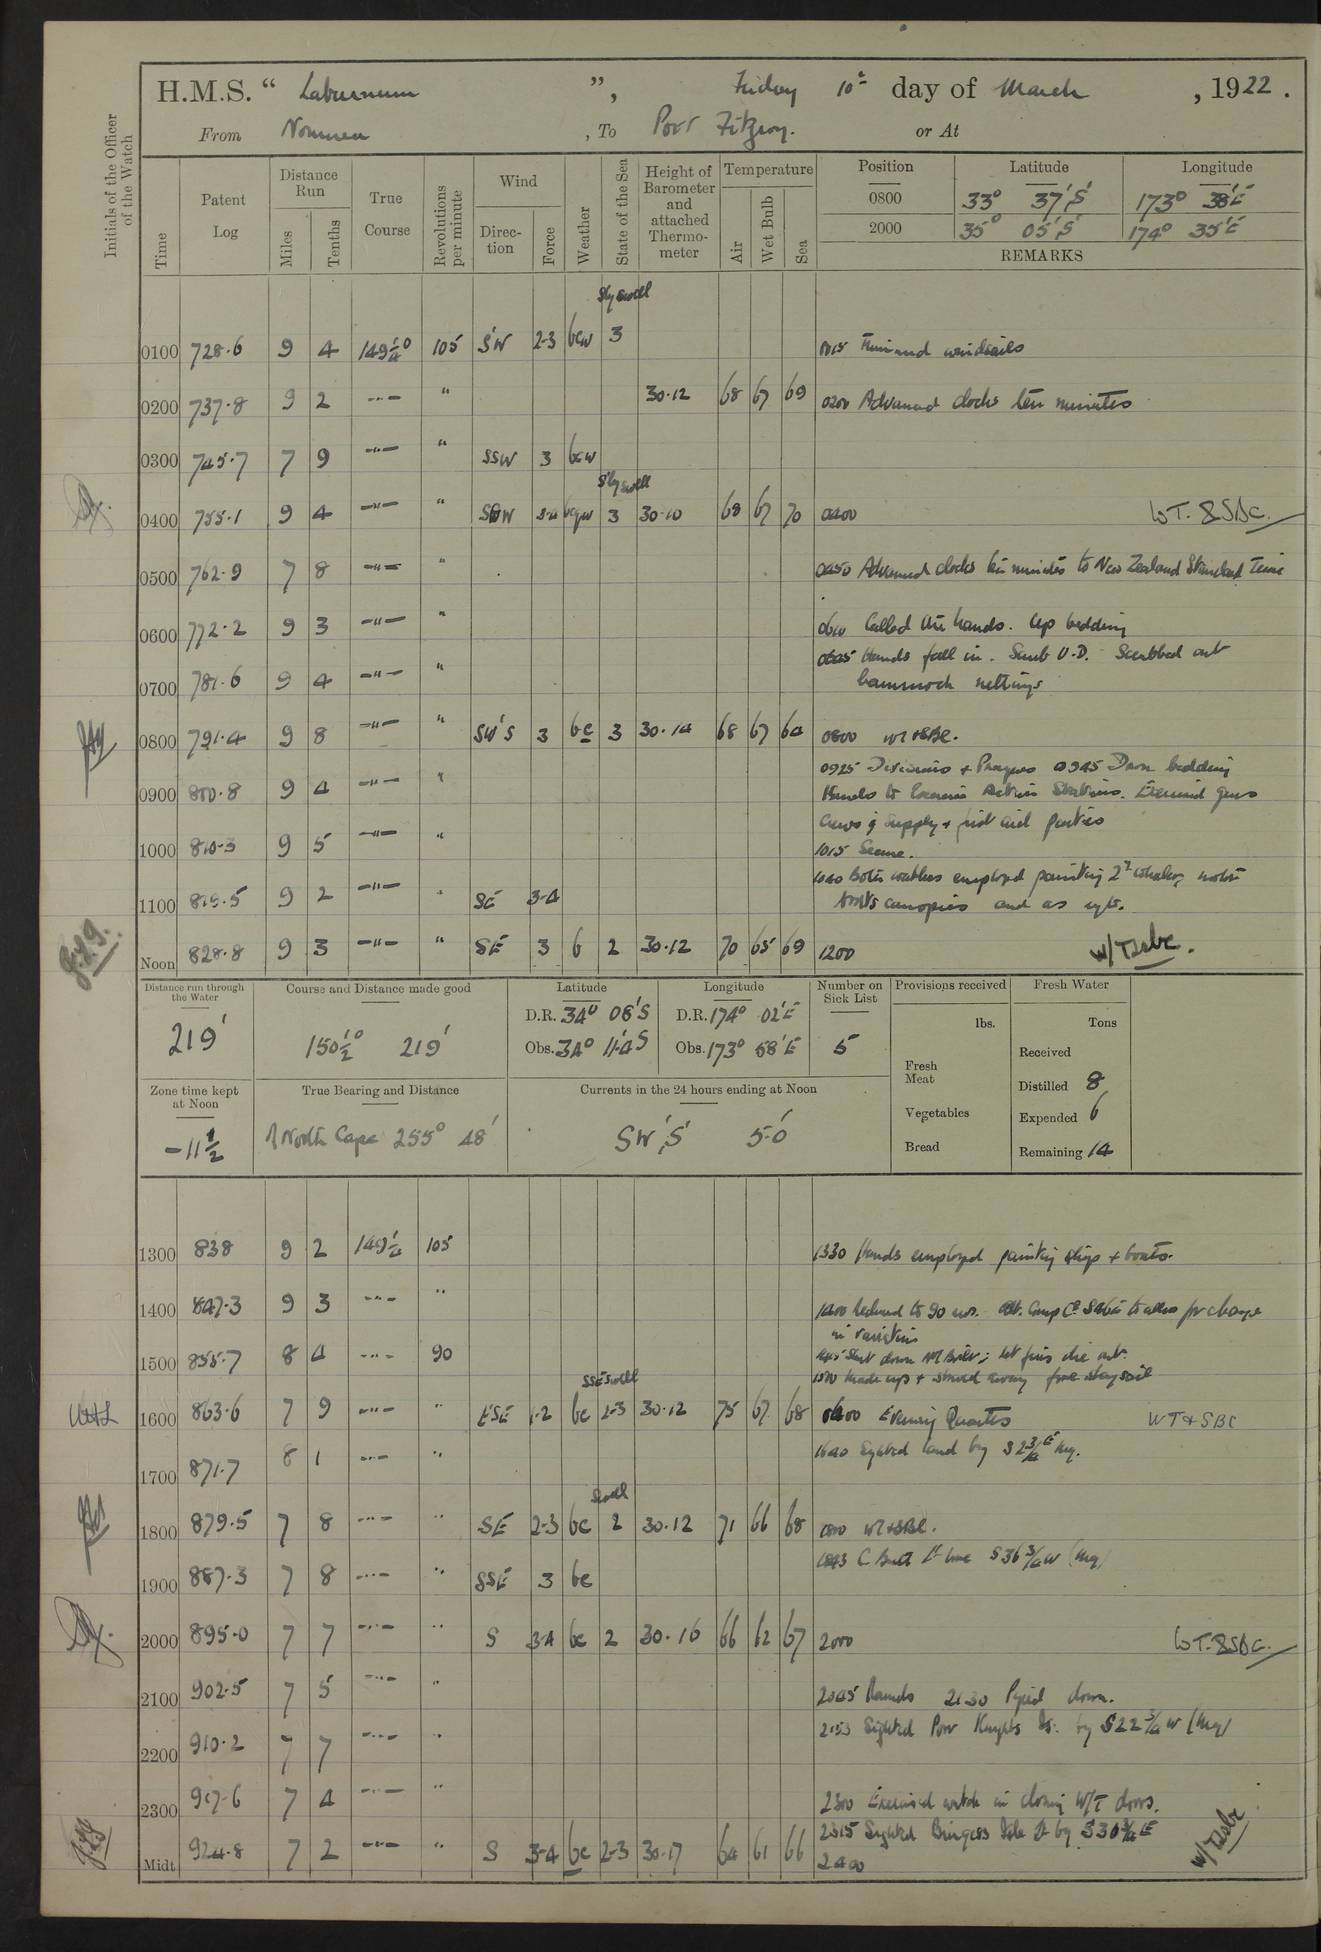 H.M.S. “ Laburnum ”, Friday 10th day of March , 1922 .
From Noumea , To Port Fitzroy. or At
Initials of the Officer of the Watch
Time Patent Log Distance Run Miles Tenths True Course Revolutions per minute Wind Direction Force Weather State of the Sea Height of Barometer and attached Thermometer Temperature Air Wet Bulb Sea Position Latitude Longitude
0800 33° 37' S 173° 38' E
2000 35° 05' S 174° 35' E
REMARKS
S'ly swell
0100 728.6 9 4 149 1/4° 105 S'W 2-3 bcw 3 0115 Trimmed windsails
0200 737.8 9 2 -"- " 30.12 68 67 69 0200 Advanced clocks ten minutes
0300 745.7 7 9 -"- " SSW 3 bcw
S'ly swell
0400 755.1 9 4 -"- " 3-4 bcqw 3 30.10 68 67 70 0400 WT. & SBC.
0500 762.9 7 8 -"- " 0450 Advanced clocks ten minutes to New Zealand Standard Time
0600 772.2 9 3 -"- " 0600 Called the hands. Up bedding
0625 Hands fall in. Scrub U.D. Scrubbed out
0700 781.6 9 4 -"- " hammock nettings
0800 791.4 9 8 -"- " SW'S 3 bc 3 30.14 68 67 64 0800 WT & SBC.
0925 Divisions & Prayers 0945 Down bedding
0900 800.8 9 4 -"- " Hands to Exercise Action Stations. Exercised guns
crews, supply & first aid parties
1000 810.3 9 5 -"- " 1015 Secure.
1040 Both watches employed painting 2nd whaler, motor
1100 819.5 9 2 -"- " SE 3-4 boats canopies and as reqte.
Noon 828.8 9 3 -"- " SE 3 b 2 30.12 70 65 69 1200 W/T & sbc.
Distance run through the Water Course and Distance made good Latitude Longitude Number on Sick List Provisions received Fresh Water
219' 150 1/2° 219' D.R. 34° 08' S D.R. 174° 02' E 5 lbs. Tons
Obs. 34° 11.4 S Obs. 173° 58' E Received
Fresh Meat Distilled 8
Zone time kept at Noon True Bearing and Distance Currents in the 24 hours ending at Noon
Vegetables Expended 6
-11 1/2 North Cape 255° 48' SW'S 5.0' Bread Remaining 14
1300 838 9 2 149 1/4 105 1330 Hands employed painting ship & boats.
1400 847.3 9 3 -"- " 1400 Reduced to 90 revs. Alt. Comp Co to allow for change
in variation
1500 855.7 8 4 -"- 90 1445 Shut down Boiler; let fires die out.
1500 made up & stowed away fore staysail
SSE swell
1600 863.6 7 9 -"- " ESE 1-2 bc 2-3 30.12 75 67 68 1600 Evening Quarters WT & SBC
1640 Sighted land brg S 2 3/4 E Mg.
1700 871.7 8 1 -"- "
Swell
1800 879.5 7 8 -"- " SE 2-3 bc 2 30.12 71 66 68 1800 WT & SBC.
1843 C Brett Lt bore S 36 3/4 W (Mg)
1900 887.3 7 8 -"- " SSE 3 bc
2000 895.0 7 7 -"- " S 3-4 bc 2 30.16 66 62 67 2000 WT. & SBC.
2100 902.5 7 5 -"- " 2045 Rounds 2130 Piped down.
2153 Sighted Poor Knights Is: brg S 22 3/4 W (Mg)
2200 910.2 7 7 -"- "
2300 917.6 7 4 -"- " 2300 Exercised watch in closing W/T doors.
2315 Sighted Burgess Isle Lt brg S 30 3/4 E
Midt 924.8 7 2 -"- " S 3-4 bc 2-3 30.17 64 61 66 2400 W/T & sbc